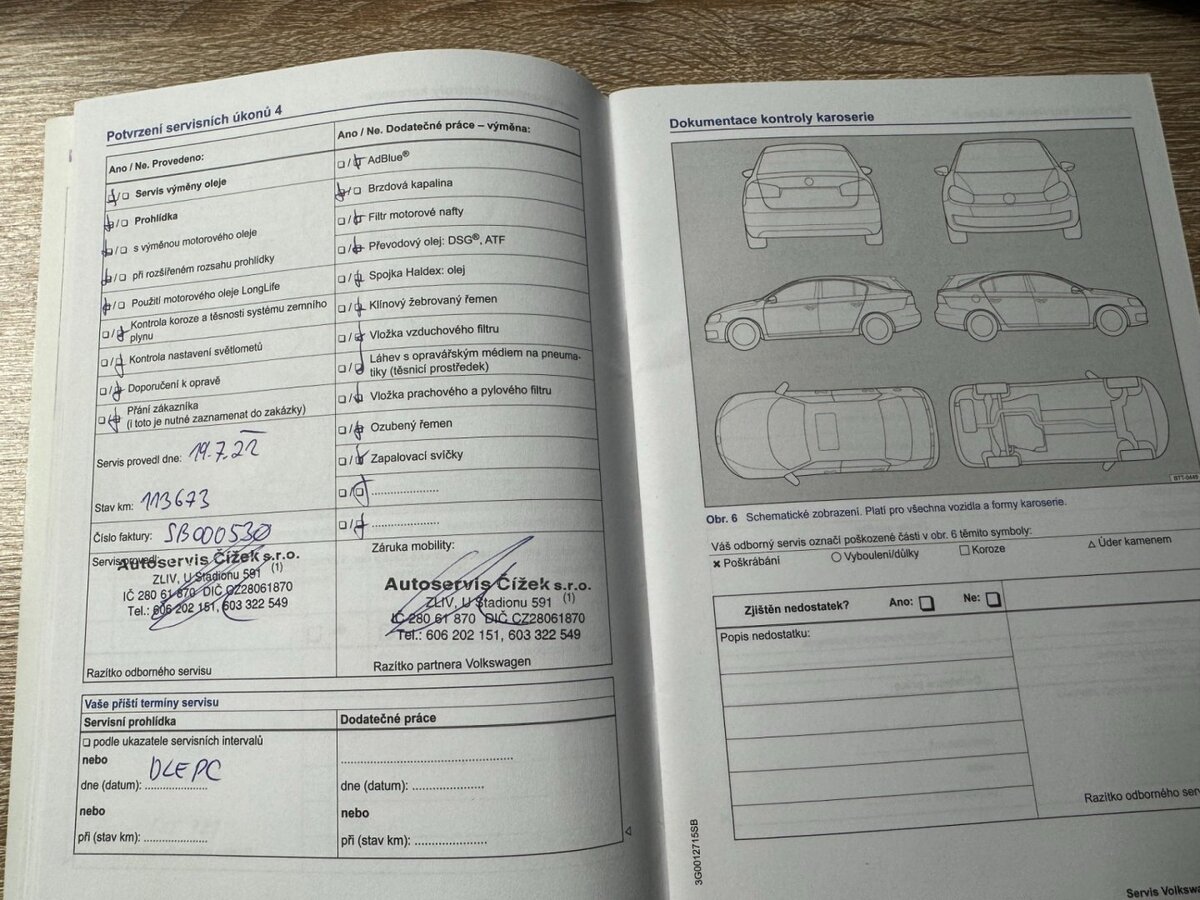 Potvrzení servisních úkonů 4
Ano / Ne. Provedeno:
❑/❑ Servis výměny oleje
❑/❑ Prohlídka
❑/❑ s výměnou motorového oleje
❑/❑ při rozšířeném rozsahu prohlídky
❑/❑ Použití motorového oleje LongLife
❑/❑ Kontrola koroze a těsnosti systému zemního
plynu
❑/❑ Kontrola nastavení světlometů
❑/❑ Doporučení k opravě
❑/❑ Přání zákazníka
(i toto je nutné zaznamenat do zakázky)
Servis provedl dne: 19.7.22
Stav km: 113673
Číslo faktury: SB000530
Servis provedl:
Autoservis Čížek s.r.o.
ZLIV, U Stadionu 591 (1)
IČ 280 61 870 DIČ CZ28061870
Tel.: 606 202 151, 603 322 549
Razítko odborného servisu
Ano / Ne. Dodatečné práce – výměna:
❑/❑ AdBlue®
❑/❑ Brzdová kapalina
❑/❑ Filtr motorové nafty
❑/❑ Převodový olej: DSG®, ATF
❑/❑ Spojka Haldex: olej
❑/❑ Klínový žebrovaný řemen
❑/❑ Vložka vzduchového filtru
❑/❑ Láhev s opravářským médiem na pneuma-
tiky (těsnicí prostředek)
❑/❑ Vložka prachového a pylového filtru
❑/❑ Ozubený řemen
❑/❑ Zapalovací svíčky
❑/❑ ....................
❑/❑ ....................
Záruka mobility:
Autoservis Čížek s.r.o.
ZLIV, U Stadionu 591 (1)
IČ 280 61 870 DIČ CZ28061870
Tel.: 606 202 151, 603 322 549
Razítko partnera Volkswagen
Vaše příští termíny servisu
Servisní prohlídka
❑ podle ukazatele servisních intervalů
nebo
DLE PC
dne (datum): ....................
nebo
při (stav km): ....................
Dodatečné práce
..................................................
dne (datum): ....................
nebo
při (stav km): ....................
Dokumentace kontroly karoserie
BTT-0449
Obr. 6 Schematické zobrazení. Platí pro všechna vozidla a formy karoserie.
Váš odborný servis označí poškozené části v obr. 6 těmito symboly:
✖ Poškrábání ○ Vyboulení/důlky □ Koroze △ Úder kamenem
Zjištěn nedostatek? Ano: ❑ Ne: ❑
Popis nedostatku:
Razítko odborného ser
3G0012715SB
Servis Volkswa